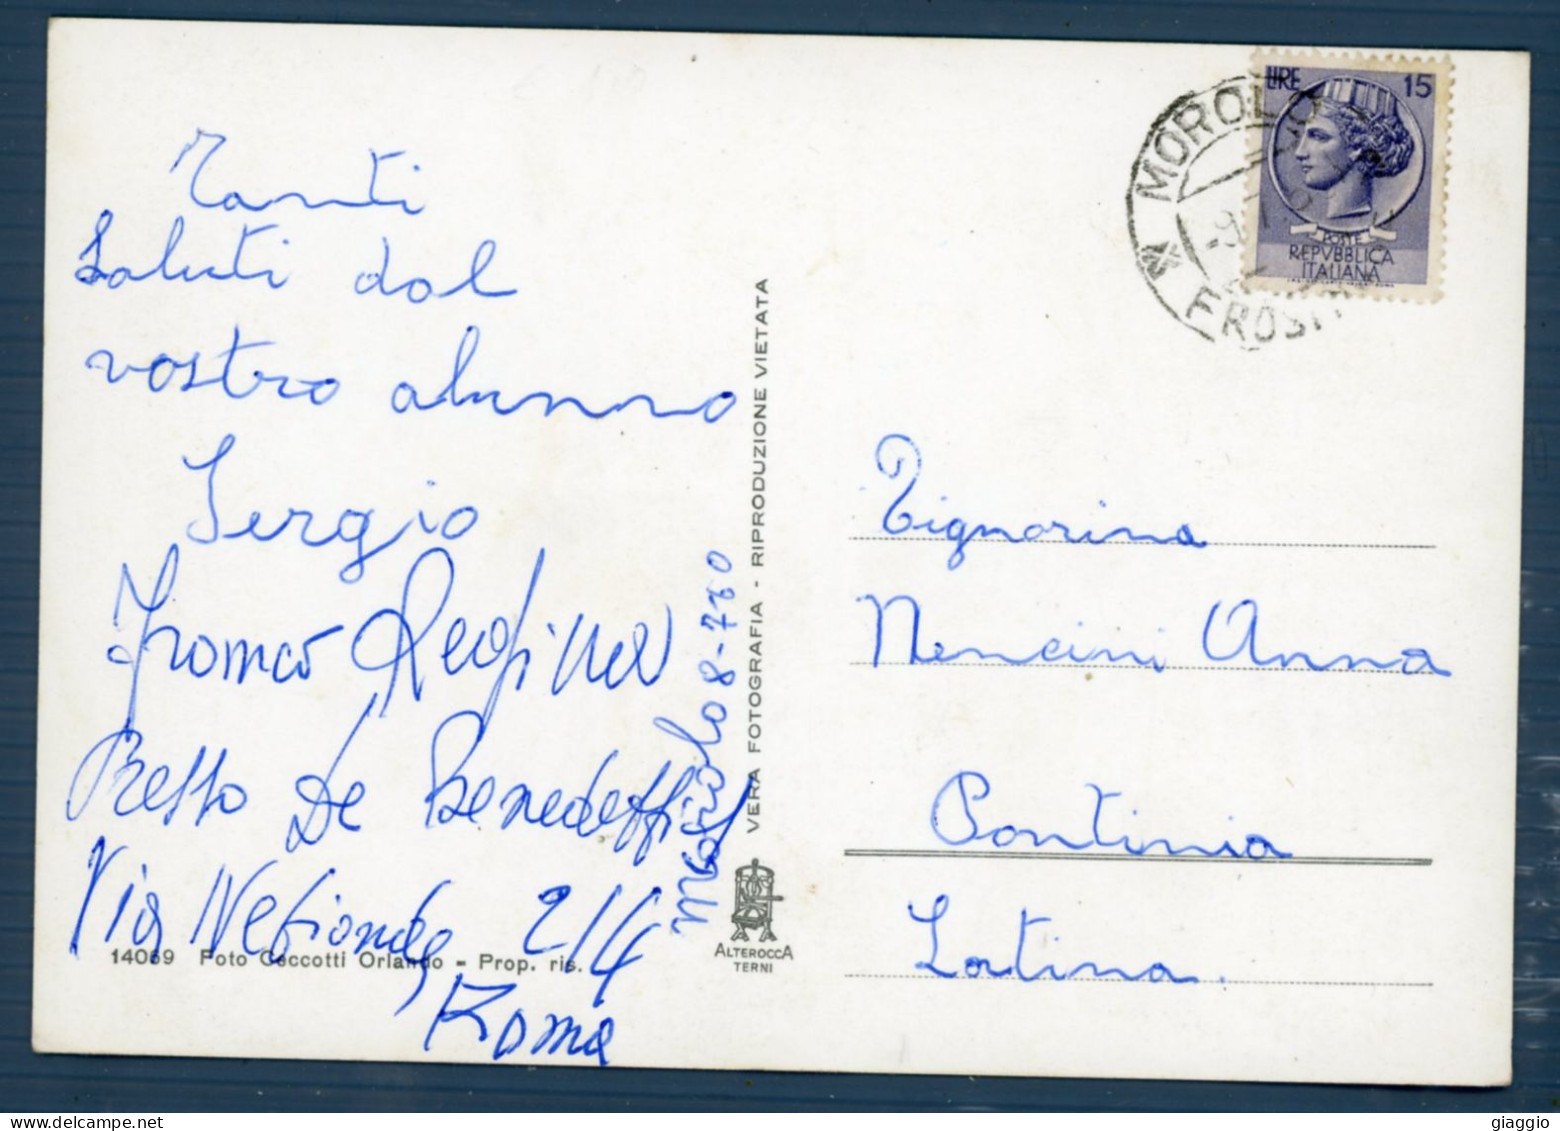 Tanti
Saluti dal
vostro alunno
Sergio
Franco Regina
Presso De Benedettis
Via Nefionda 214
Roma
Morolo 8-760
14069 Foto Ceccotti Orlando - Prop. ris.
VERA FOTOGRAFIA - RIPRODUZIONE VIETATA
ALTEROCCA
TERNI
MOROLO
FROSI
LIRE 15
POSTE
REPVBBLICA
ITALIANA
Signorina
Nencini Anna
Pontinia
Latina.
giaggio